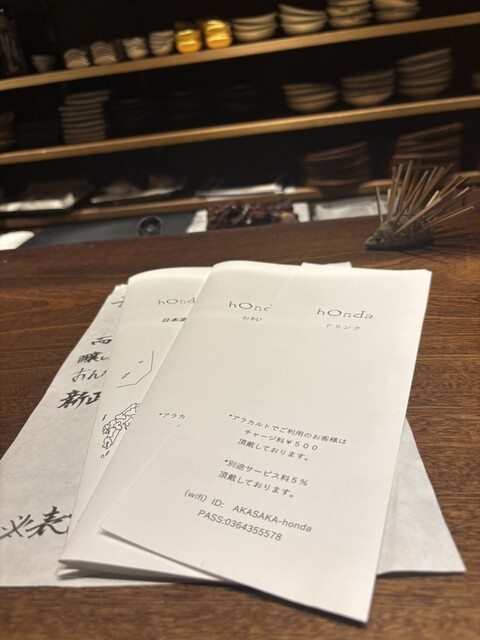 hOnda
ドリンク
*アラカルトでご利用のお客様は
チャージ料¥500
頂戴しております。
*別途サービス料5%
頂戴しております。
(wifi) ID: AKASAKA-honda
PASS:0364355578
hOn
お料
*アラカ
hOnd
日本酒
おん
新